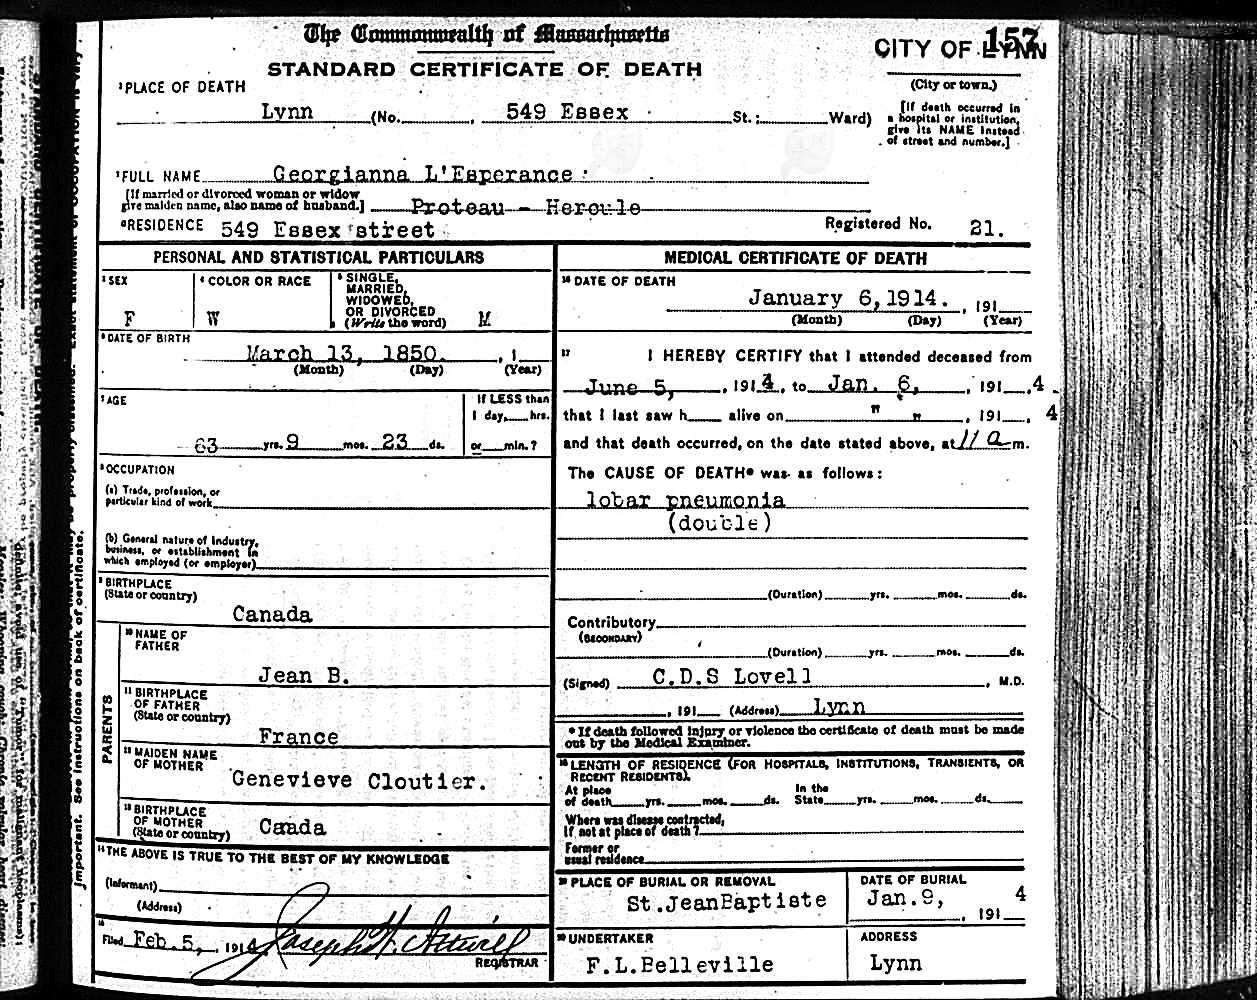 The Commonwealth of Massachusetts
157
CITY OF LYNN
STANDARD CERTIFICATE OF DEATH
(City or town.)
¹PLACE OF DEATH
Lynn (No. , 549 Essex St.; Ward)
[If death occurred in
a hospital or institution,
give its NAME instead
of street and number.]
²FULL NAME Georgianna L'Esperance
[If married or divorced woman or widow
give maiden name, also name of husband.] Proteau - Hercule
RESIDENCE 549 Essex street
Registered No. 21.
PERSONAL AND STATISTICAL PARTICULARS
³SEX
F
⁴COLOR OR RACE
W
⁵SINGLE,
MARRIED,
WIDOWED,
OR DIVORCED
(Write the word) M
⁶DATE OF BIRTH
March 13, 1850. , 1
(Month) (Day) (Year)
⁷AGE
63 yrs. 9 mos. 23 ds.
If LESS than
1 day, hrs.
or min.?
⁸OCCUPATION
(a) Trade, profession, or
particular kind of work
(b) General nature of industry,
business, or establishment in
which employed (or employer)
⁹BIRTHPLACE
(State or country)
Canada
PARENTS
¹⁰NAME OF
FATHER
Jean B.
¹¹BIRTHPLACE
OF FATHER
(State or country)
France
¹²MAIDEN NAME
OF MOTHER
Genevieve Cloutier.
¹³BIRTHPLACE
OF MOTHER
(State or country) Canada
¹⁴THE ABOVE IS TRUE TO THE BEST OF MY KNOWLEDGE
(Informant)
(Address)
15
Filed Feb. 5, 1914 Joseph W. Attwill
REGISTRAR
MEDICAL CERTIFICATE OF DEATH
¹⁶DATE OF DEATH
January 6,1914. , 191
(Month) (Day) (Year)
17 I HEREBY CERTIFY that I attended deceased from
June 5, , 1914, to Jan. 6, , 191 4
that I last saw h alive on " " , 191 , 4
and that death occurred, on the date stated above, at 11 a m.
The CAUSE OF DEATH* was as follows:
lobar pneumonia
(double)
(Duration) yrs. mos. ds.
Contributory
(SECONDARY)
(Duration) yrs. mos. ds.
(Signed) C.D.S Lovell , M.D.
, 191 (Address) Lynn
* If death followed injury or violence the certificate of death must be made
out by the Medical Examiner.
¹⁸LENGTH OF RESIDENCE (FOR HOSPITALS, INSTITUTIONS, TRANSIENTS, OR
RECENT RESIDENTS).
At place In the
of death yrs. mos. ds. State yrs. mos. ds.
Where was disease contracted,
If not at place of death?
Former or
usual residence
¹⁹PLACE OF BURIAL OR REMOVAL
St.JeanBaptiste
DATE OF BURIAL
Jan.9, 4
, 191
²⁰UNDERTAKER
F.L.Belleville
ADDRESS
Lynn
Important. See instructions on back of certificate.